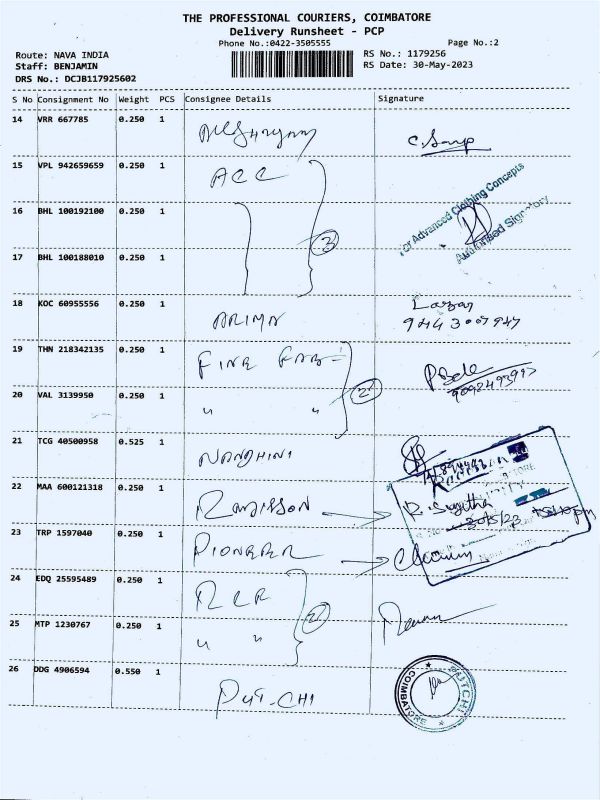 THE PROFESSIONAL COURIERS, COIMBATORE
Delivery Runsheet - PCP
Phone No.:0422-3505555
Page No.:2
Route: NAVA INDIA
RS No.: 1179256
Staff: BENJAMIN
RS Date: 30-May-2023
DRS No.: DCJB117925602
S No Consignment No Weight PCS Consignee Details Signature
14 VRR 667785 0.250 1
15 VPL 942659659 0.250 1 ACC
For Advanced Clothing Concepts
Authorised Signatory
16 BHL 100192100 0.250 1
3
17 BHL 100188010 0.250 1
18 KOC 60955556 0.250 1
19 THN 218342135 0.250 1 FINE FAB
20 VAL 3139950 0.250 1 " " 2
21 TCG 40500958 0.525 1 NANDHINI
22 MAA 600121318 0.250 1 Radisson R. Sugitha
30/5/23
23 TRP 1597040 0.250 1 PIONEER
24 EDQ 25595489 0.250 1
2
25 MTP 1230767 0.250 1 " "
26 DDG 4906594 0.550 1 PUT-CHI
PUTCHI
COIMBATORE